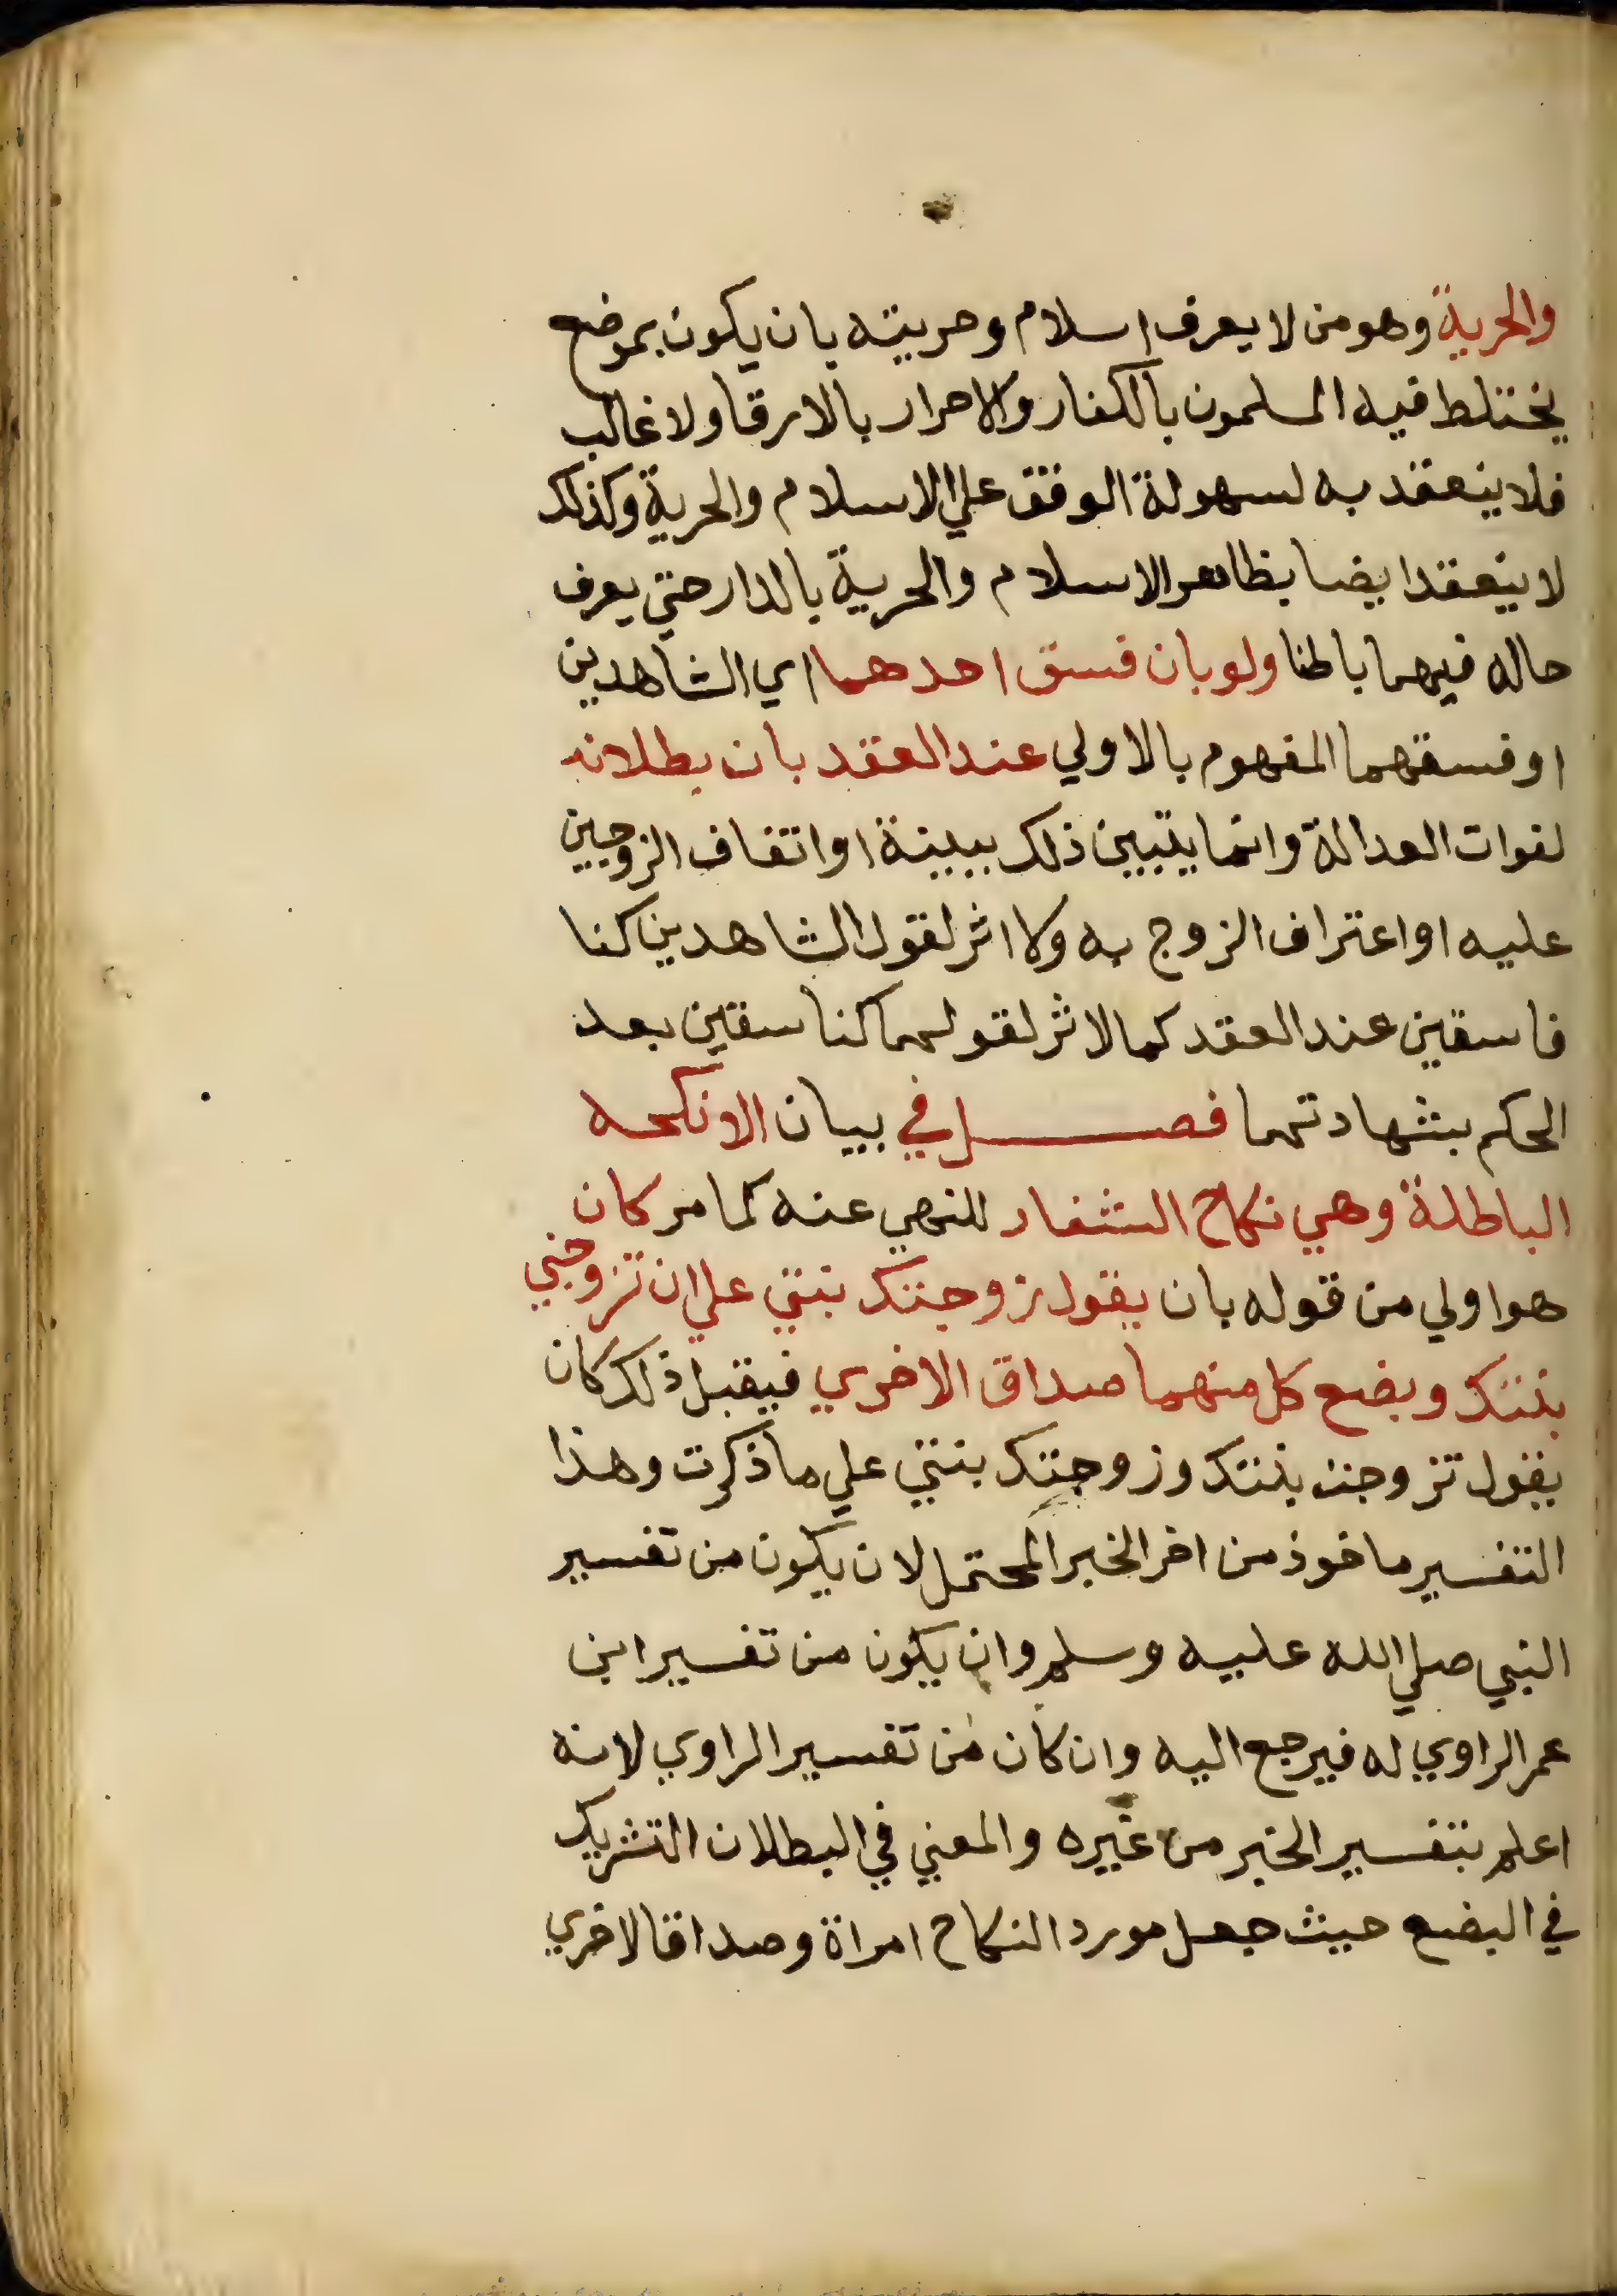 والحرية وهو من لا يعرف اسلام وحريته بان يكون بموضع
يختلط فيه المسلمون بالكفار والاحرار بالارقا ولا غالب
فلا ينعقد به لسهولة الوفق علي الاسلام والحرية وكذلك
لا ينعقد ايضا بظاهر الاسلام والحرية بالدار حتي يعرف
حاله فيهما باطنا ولو بان فسق احدهما اي الشاهدين
او فسقهما المفهوم بالاولي عند العقد بان بطلانه
لفوات العدالة وانما يتبين ذلك ببينة او اتفاق الزوجين
عليه او اعتراف الزوج به ولا اثر لقول الشاهدين كنا
فاسقين عند العقد كما لا اثر لقولهما كنا سقين بعد
الحكم بشهادتهما فصل في بيان الانكحه
الباطلة وهي نكاح الشغار للنهي عنه كما مر كان
هو اولي من قوله بان يقول زوجتك بنتي علي ان تزوجني
بنتك وبضع كل منهما صداق الاخري فيقبل ذلك كان
يقول تزوجت بنتك وزوجتك بنتي علي ما ذكرت وهذا
التفسير ماخوذ من اخر الخبر المحتمل لان يكون من تفسير
النبي صلي الله عليه وسلم وان يكون من تفسير ابن
عمر الراوي له فيرجع اليه وان كان من تفسير الراوي لانه
اعلم بتفسير الخبر من غيره والمعني في البطلان التشريك
في البضع حيث جعل مورد النكاح امراة وصداقا لاخري